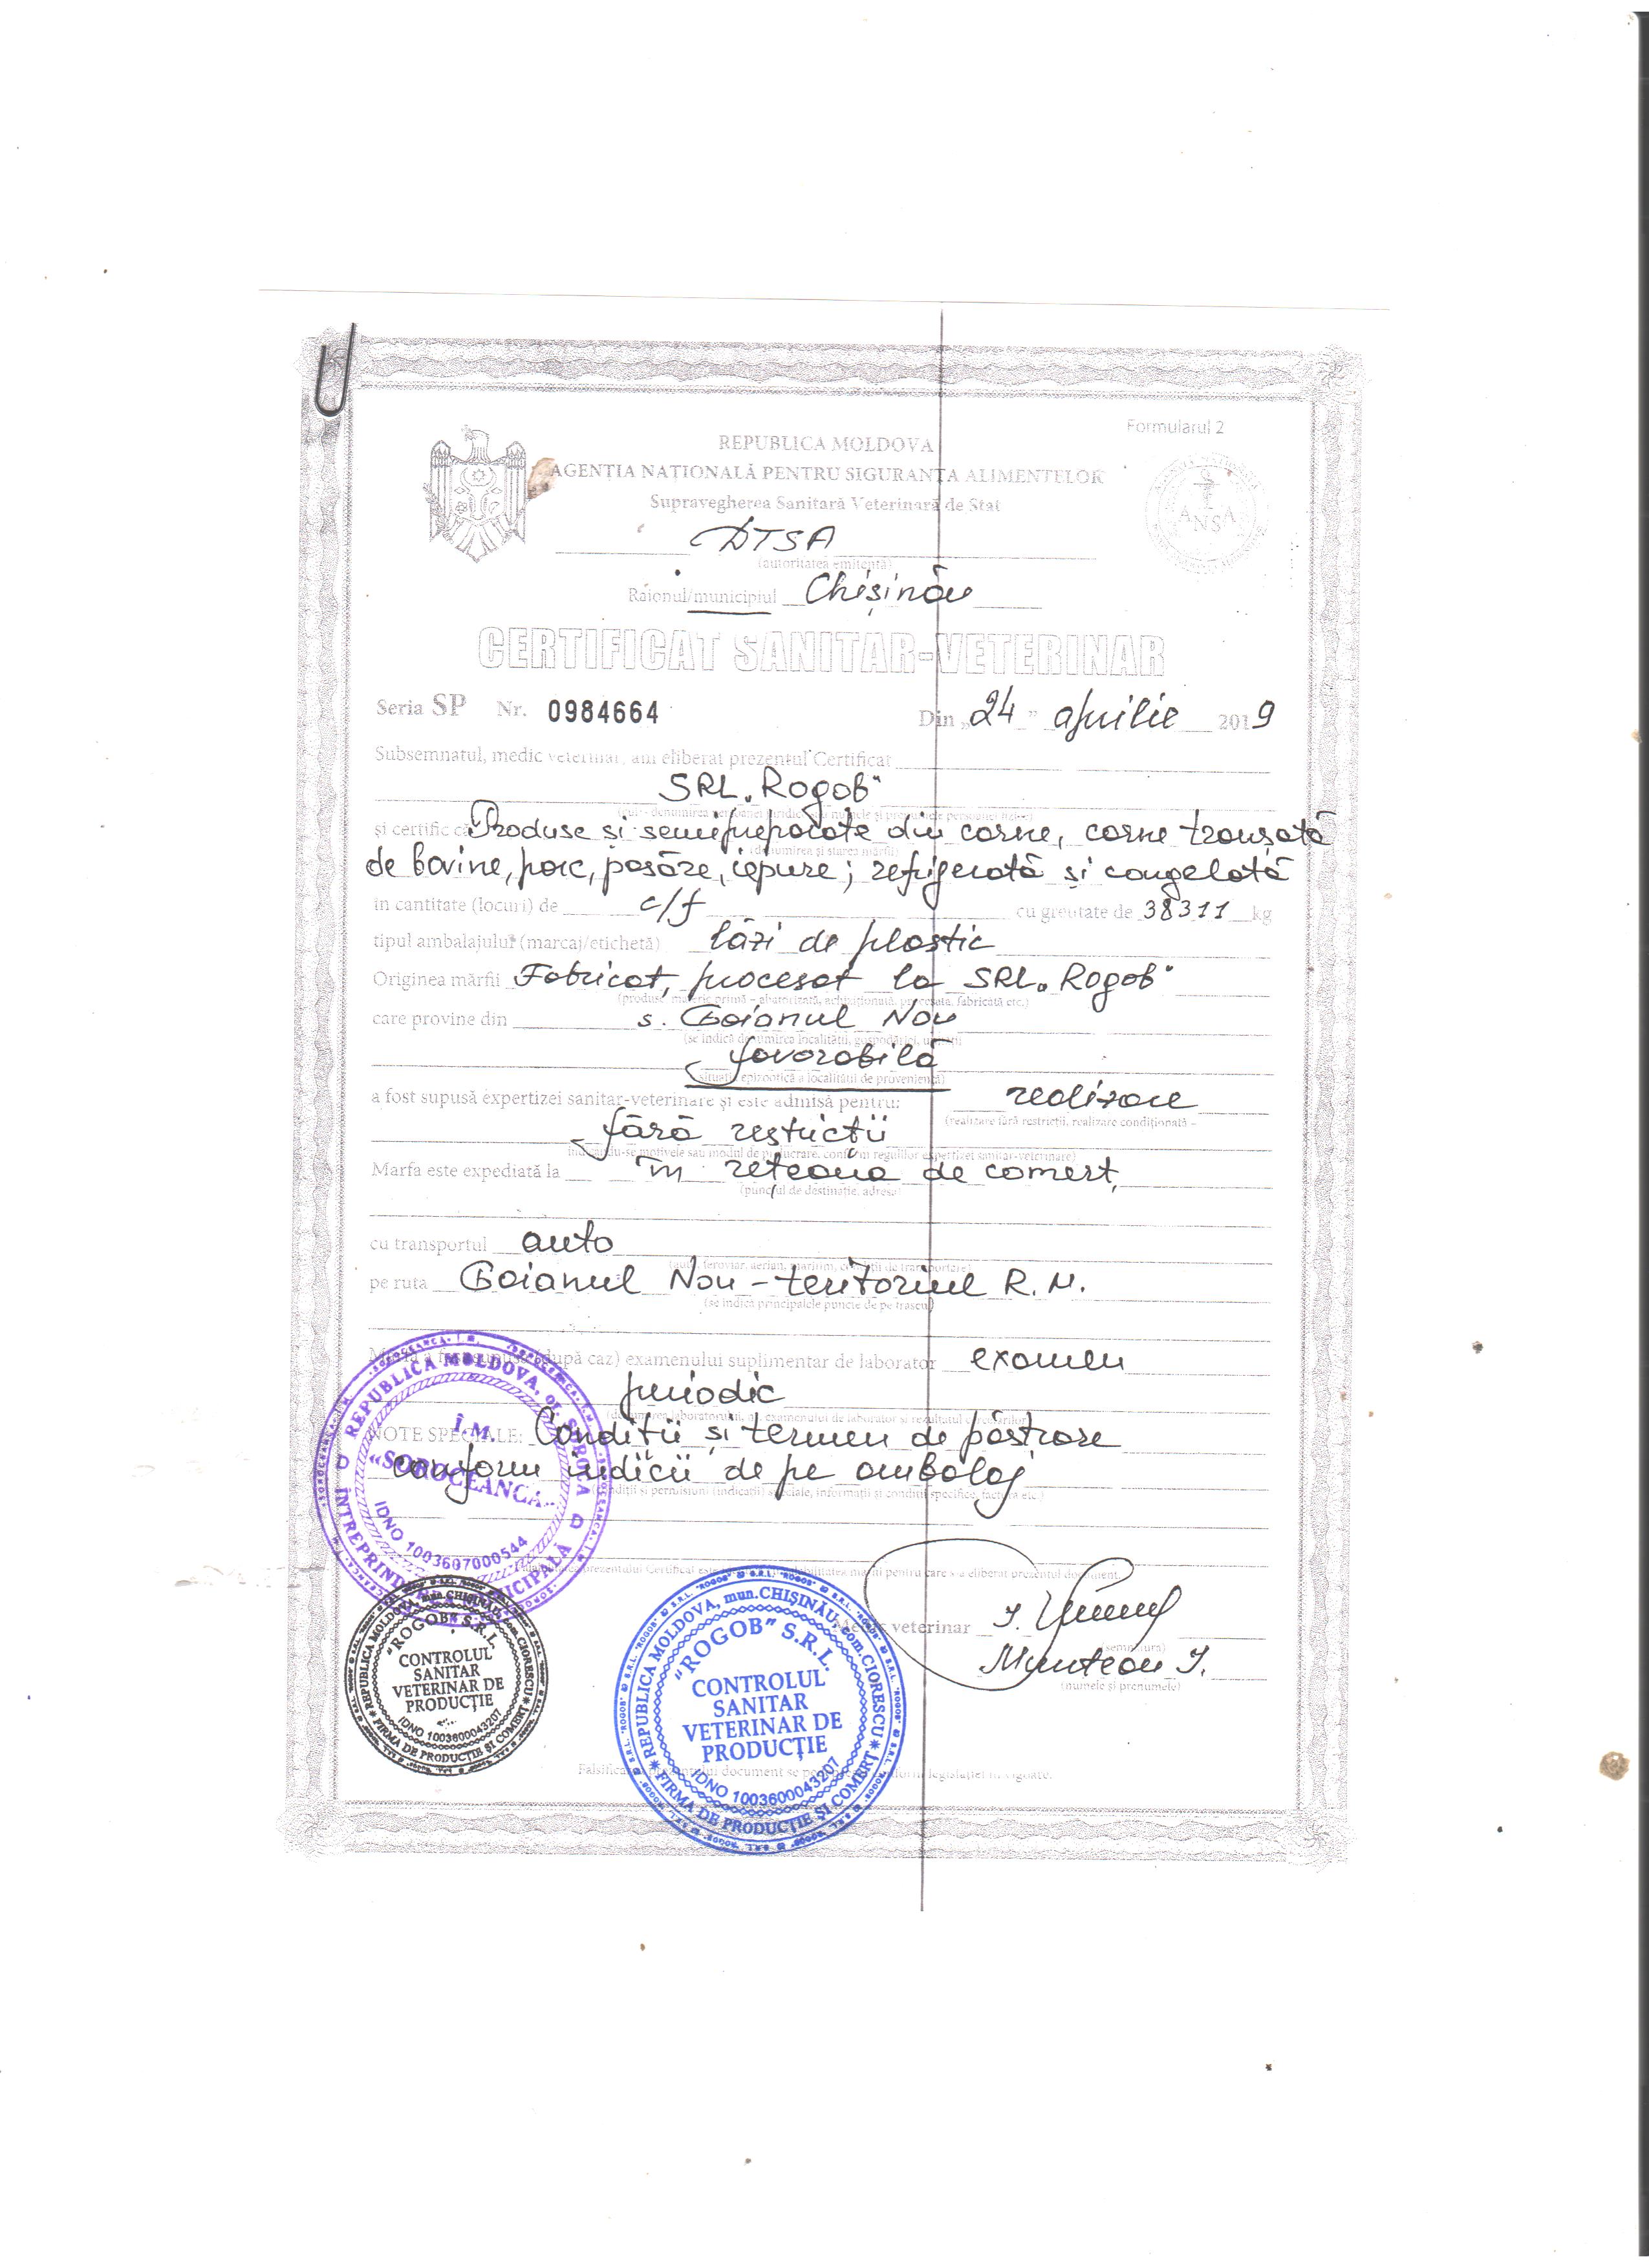 Formularul 2
REPUBLICA MOLDOVA
AGENȚIA NAȚIONALĂ PENTRU SIGURANȚA ALIMENTELOR
Supravegherea Sanitară Veterinară de Stat
ANSA
DTSA
(autoritatea emitentă)
Raionul/municipiul Chișinău
CERTIFICAT SANITAR-VETERINAR
Seria SP Nr. 0984664 Din „24" aprilie 2019
Subsemnatul, medic veterinar, am eliberat prezentul Certificat
SRL „Rogob"
(cui - denumirea persoanei juridice sau numele și prenumele persoanei fizice)
și certific că Produse și semipreparate din carne, carne tranșată
(denumirea și starea mărfii)
de bovine, porc, pasăre, iepure; refrigerată și congelată
în cantitate (locuri) de c/f cu greutate de 38311 kg
tipul ambalajului (marcaj/etichetă) lăzi de plastic
Originea mărfii Fabricat, procesat la SRL „Rogob"
(produse, materie primă – abatorizată, achiziționată, procesată, fabricată etc.)
care provine din s. Goianul Nou
(se indică denumirea localității, gospodăriei,
favorabilă
(situația epizootică a localității de proveniență)
a fost supusă expertizei sanitar-veterinare și este admisă pentru: realizare
(realizare fără restricții, realizare condiționată –
fără restricții
indicându-se motivele sau modul de prelucrare, conform regulilor expertizei sanitar-veterinare)
Marfa este expediată la în rețeaua de comerț,
(punctul de destinație, adresa)
cu transportul auto
(auto, feroviar, aerian, maritim, condiții de transportare)
pe ruta Goianul Nou - teritoriul R.M.
(se indică principalele puncte de pe traseu)
Marfa a fost supusă (după caz) examenului suplimentar de laborator examen
periodic
(denumirea laboratorului, nr. examenului de laborator și rezultatul cercetărilor)
NOTE SPECIALE: Condiții și termen de păstrare
conform indicii de pe ambalaj
(condiții și permisiuni (indicații) speciale, informații și condiții specifice, factura etc.)
prezentului Certificat este mărfii pentru care s-a eliberat prezentul document.
Medic veterinar
(semnătura)
Munteanu I.
(numele și prenumele)
Falsificarea prezentului document se conform legislației în vigoare.
REPUBLICA MOLDOVA, or. SOROCA
ÎNTREPRINDEREA MUNICIPALĂ
Î.M.
«SOROCEANCA»
IDNO 1003607000544
REPUBLICA MOLDOVA, mun.CHIȘINĂU, com.CIORESCU
"ROGOB" S.R.L.
CONTROLUL
SANITAR
VETERINAR DE
PRODUCȚIE
IDNO 1003600043207
FIRMA DE PRODUCȚIE ȘI COMERȚ
REPUBLICA MOLDOVA, mun.CHIȘINĂU, com.CIORESCU
"ROGOB" S.R.L.
CONTROLUL
SANITAR
VETERINAR DE
PRODUCȚIE
IDNO 1003600043207
FIRMA DE PRODUCȚIE ȘI COMERȚ